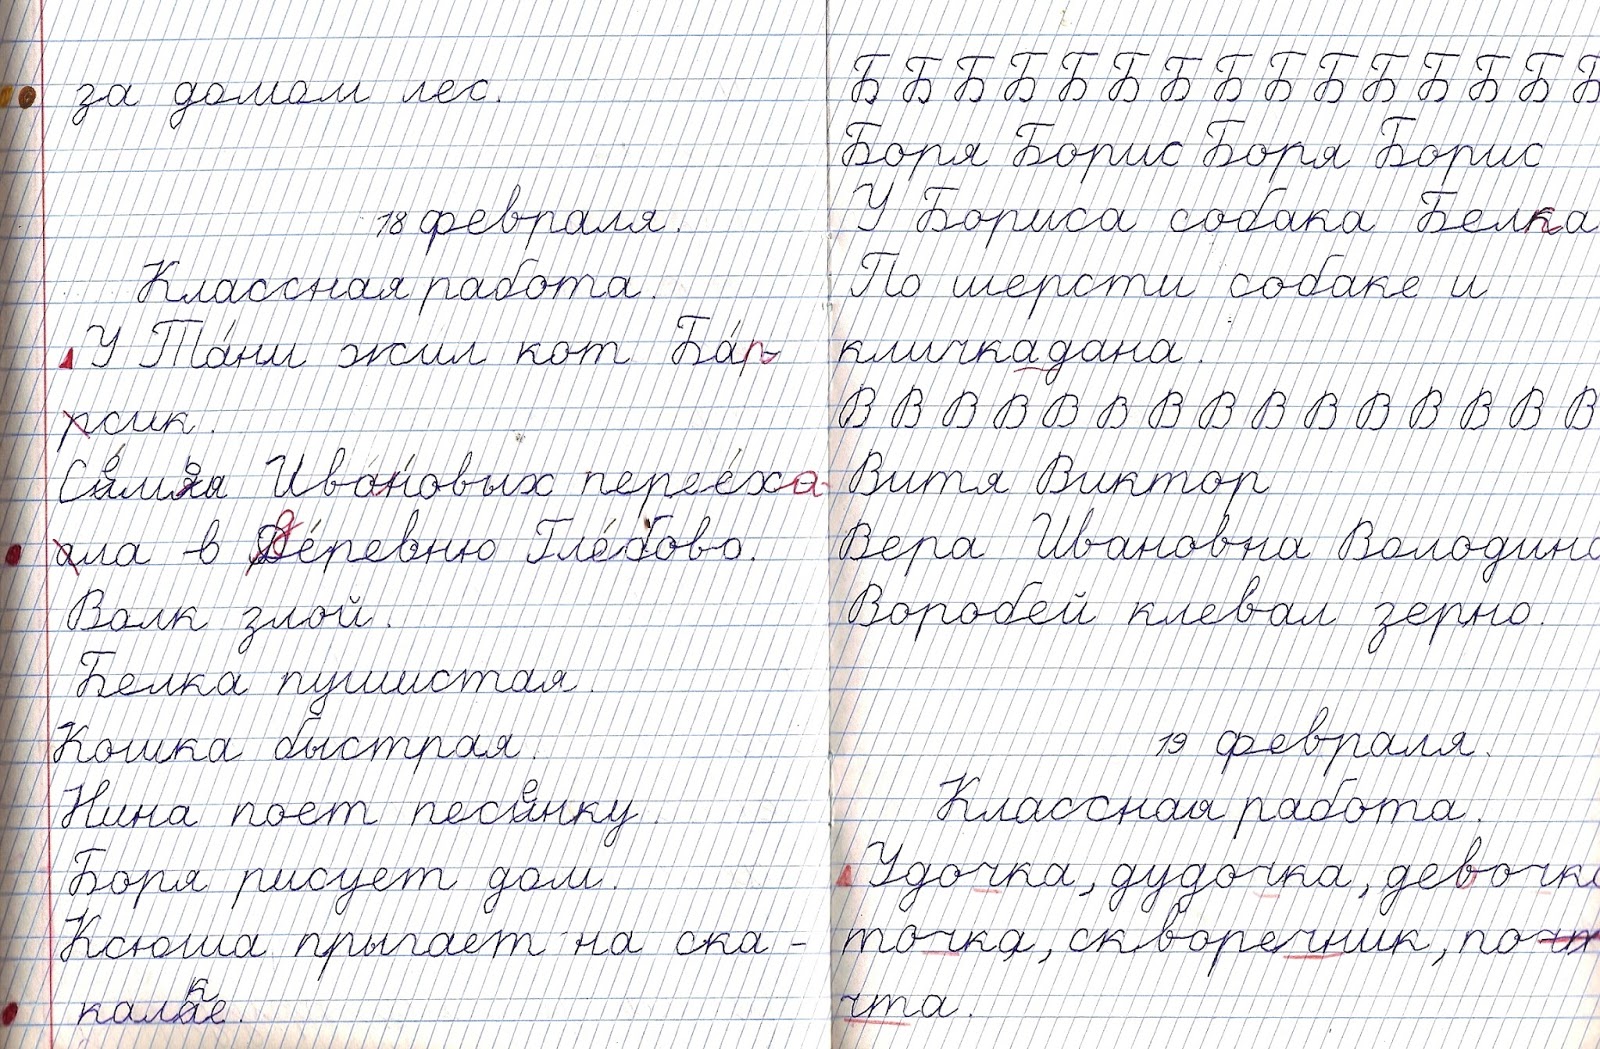 за домом лес.
18 февраля.
Классная работа.
У Та́ни жил кот Ба́р-
рсик.
Семья Ива́новых перее́ха-
ала в де́ревню Гле́бово.
Волк злой.
Белка пушистая.
Кошка быстрая.
Нина поет песенку.
Боря рисует дом.
Ксюша прыгает на ска-
калке.
Б Б Б Б Б Б Б Б Б Б Б Б Б Б Б
Боря Борис Боря Борис
У Бориса собака Белка
По шерсти собаке и
кличкадана.
В В В В В В В В В В В В В В В
Витя Виктор
Вера Ивановна Володина
Воробей клевал зерно.
19 февраля.
Классная работа.
Удочка, дудочка, девочка
точка, скворечник, поч
чта.